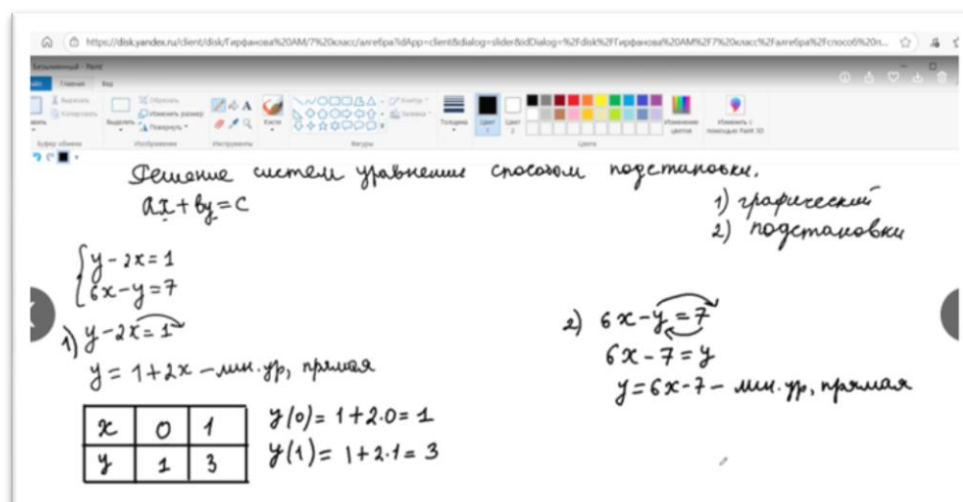 https://disk.yandex.ru/client/disk/Гирфанова%20АМ/7%20класс/алгебра?idApp=client&dialog=slider&idDialog=%2Fdisk%2FГирфанова%20АМ%2F7%20класс%2Fалгебра%2Fспособ%20п...
Безымянный - Paint
Главная Вид
Вырезать
Копировать
Выделить
Обрезать
Изменить размер
Повернуть
Кисти
Контур
Заливка
Толщина
Цвет 1
Цвет 2
Изменение цветов
Изменить с помощью Paint 3D
Буфер обмена Изображение Инструменты Фигуры Цвета
Решение систем уравнение способом подстановки.
ax+by=c
1) графический
2) подстановки
y-2x=1
6x-y=7
1) y-2x=1
y=1+2x - лин. ур, прямая
x 0 1
y 1 3
y(0)=1+2·0=1
y(1)=1+2·1=3
2) 6x-y=7
6x-7=y
y=6x-7- лин. ур, прямая